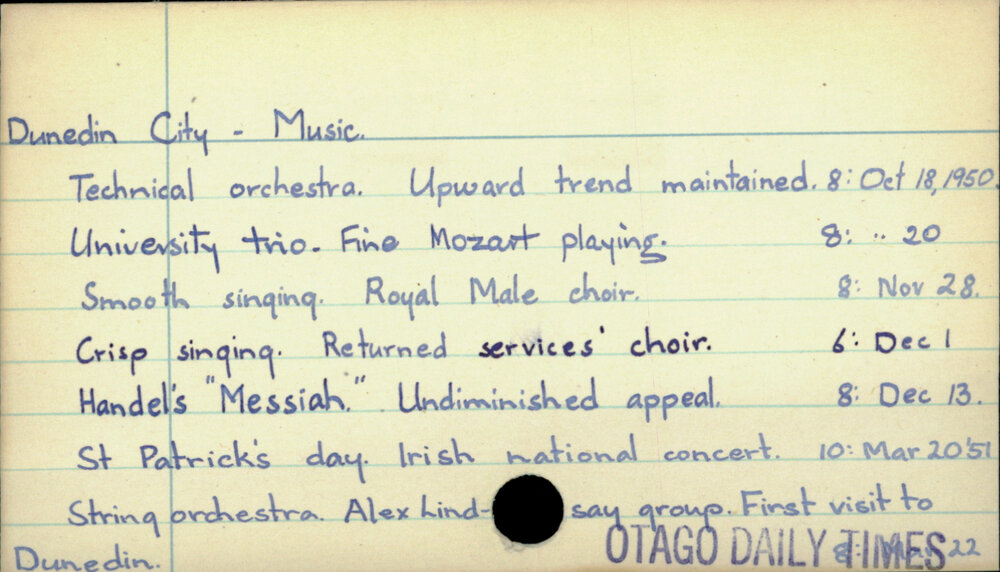 Dunedin City - Music.
Technical orchestra. Upward trend maintained. 8: Oct 18, 1950.
University trio. Fine Mozart playing. 8: .. 20
Smooth singing. Royal Male choir. 8: Nov 28.
Crisp singing. Returned services' choir. 6: Dec 1
Handel's "Messiah." Undiminished appeal. 8: Dec 13.
St Patrick's day. Irish national concert. 10: Mar 20 '51
String orchestra. Alex Lind-say group. First visit to
Dunedin. 8: 22
OTAGO DAILY TIMES